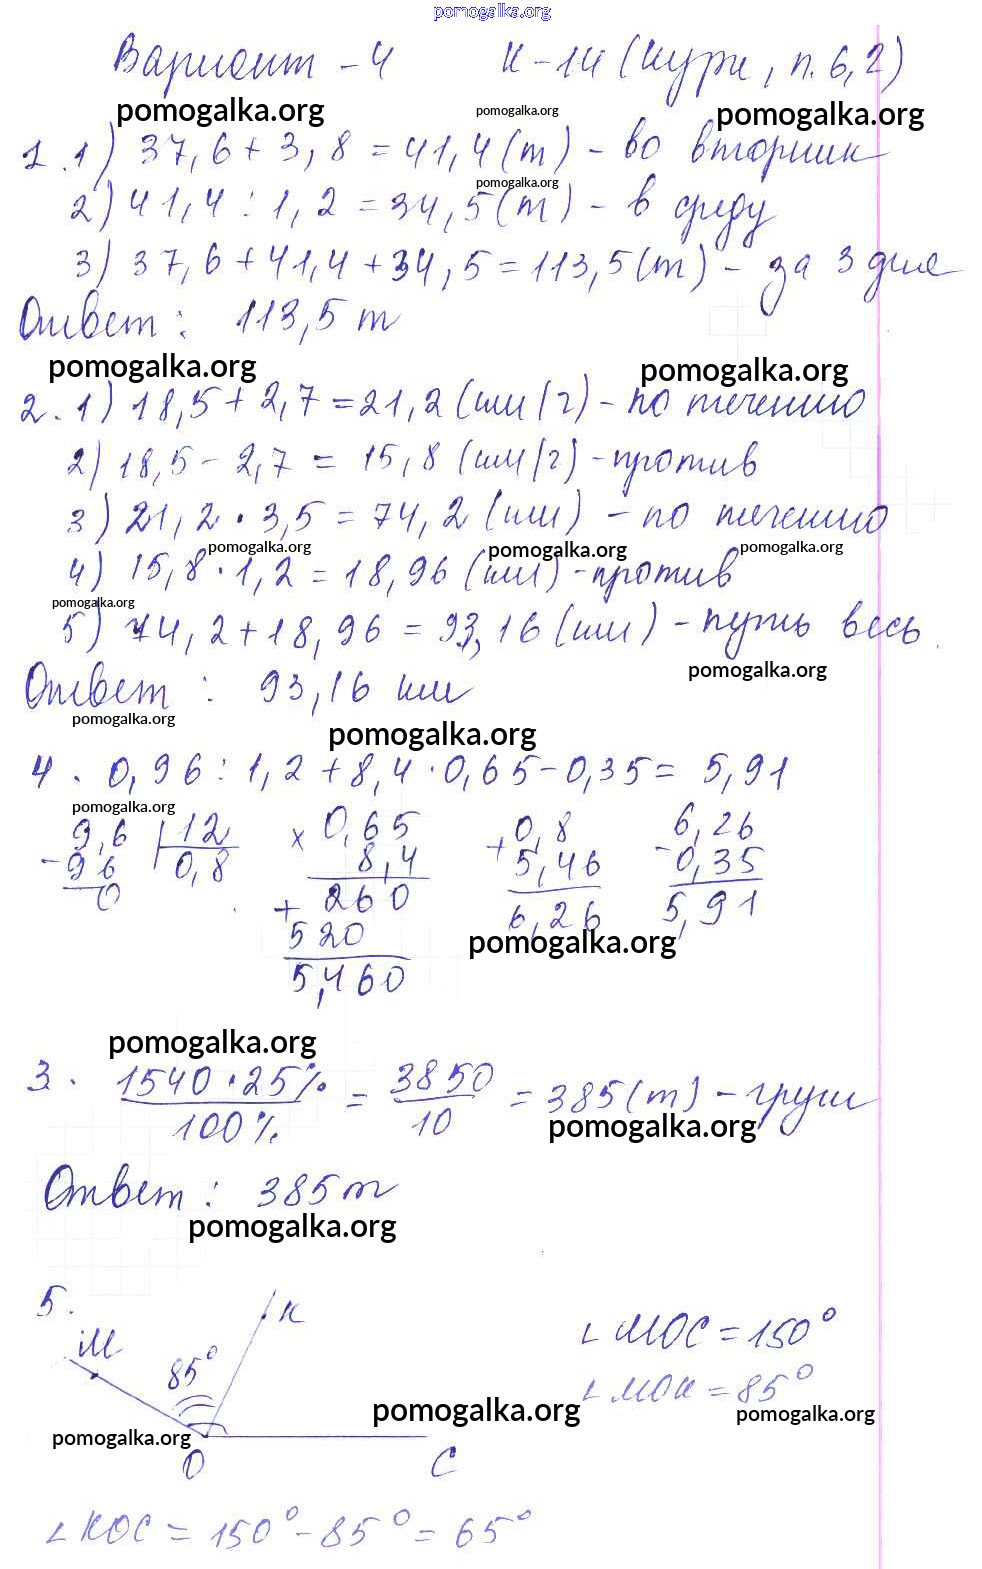 pomogalka.org
Вариант - 4 К-14 (Курк, п. 6, 2)
pomogalka.org pomogalka.org pomogalka.org
1. 1) 37,6 + 3,8 = 41,4 (т) - во вторник
pomogalka.org
2) 41,4 : 1,2 = 34,5 (т) - в среду
3) 37,6 + 41,4 + 34,5 = 113,5 (т) - за 3 дня
Ответ: 113,5 т
pomogalka.org pomogalka.org
2. 1) 18,5 + 2,7 = 21,2 (км/г) - по течению
2) 18,5 - 2,7 = 15,8 (км/г) - против
3) 21,2 · 3,5 = 74,2 (км) - по течению
pomogalka.org pomogalka.org pomogalka.org
4) 15,8 · 1,2 = 18,96 (км) - против
pomogalka.org
5) 74,2 + 18,96 = 93,16 (км) - путь весь
pomogalka.org
Ответ: 93,16 км
pomogalka.org
pomogalka.org
4. 0,96 : 1,2 + 8,4 · 0,65 - 0,35 = 5,91
pomogalka.org
9,6 | 12 × 0,65 + 0,8 6,26
- 96 0,8 8,4 5,46 - 0,35
0 + 260 6,26 5,91
520
pomogalka.org
5,460
pomogalka.org
3. 1540 · 25% / 100% = 3850 / 10 = 385 (т) - груш
pomogalka.org
Ответ: 385 т
pomogalka.org
5.
М К
85°
∠ МОС = 150°
∠ МОК = 85°
pomogalka.org pomogalka.org
pomogalka.org
О С
∠ КОС = 150° - 85° = 65°